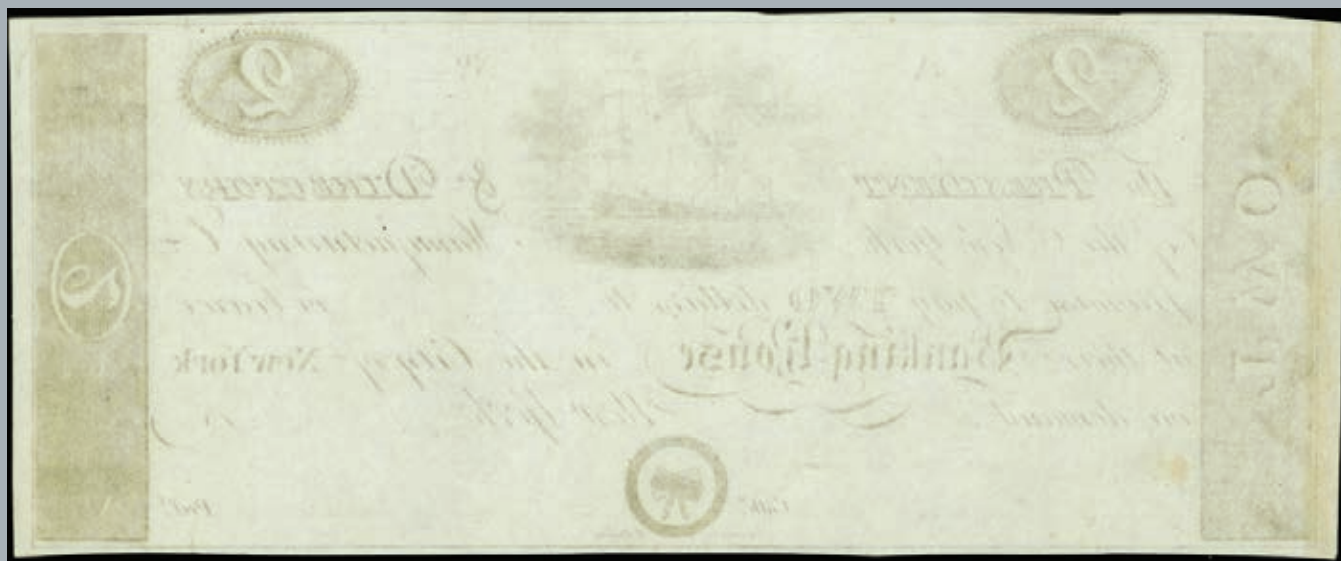 2 2
No
The PRESIDENT & DIRECTORS
of the New York Manufacturing Co
promise to pay TWO dollars to or bearer
at their Banking House in the City of New York
on demand. New York 18
Cashr. Prest.
TWO
2